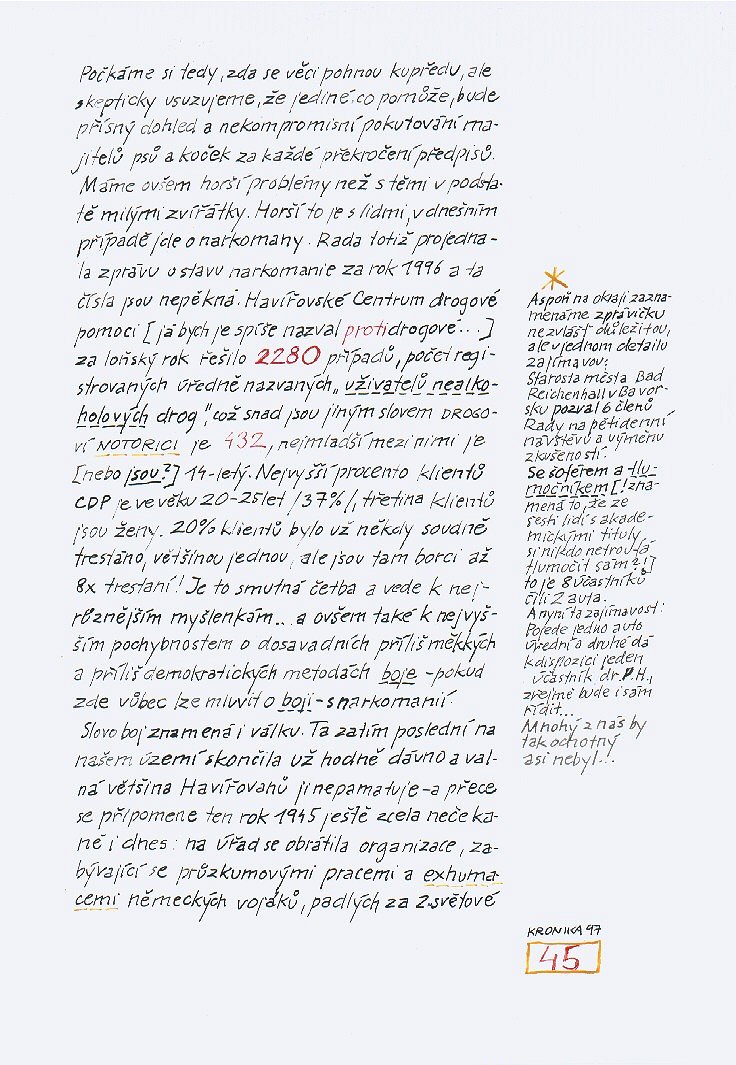 Počkáme si tedy, zda se věci pohnou kupředu, ale
skepticky usuzujeme, že jediné, co pomůže, bude
přísný dohled a nekompromisní pokutování ma-
jitelů psů a koček za každé překročení předpisů.
Máme ovšem horší problémy než s těmi v podsta-
tě milými zvířátky. Horší to je s lidmi, v dnešním
případě jde o narkomany. Rada totiž projedna-
la zprávu o stavu narkomanie za rok 1996 a ta
čísla jsou nepěkná. Havířovské Centrum drogové
pomoci [já bych je spíše nazval protidrogové...]
za loňský rok řešilo 2280 případů, počet regi-
strovaných úředně nazvaných „uživatelů nealko-
holových drog", což snad jsou jiným slovem DROGO-
VÍ NOTORICI je 432, nejmladší mezi nimi je
[nebo jsou?] 14-letý. Nejvyšší procento klientů
CDP je ve věku 20-25 let /37%/, třetina klientů
jsou ženy. 20% klientů bylo už někdy soudně
trestáno, většinou jednou, ale jsou tam borci až
8x trestaní! Je to smutná četba a vede k nej-
různějším myšlenkám... a ovšem také k nejvyš-
ším pochybnostem o dosavadních příliš měkkých
a příliš demokratických metodách boje - pokud
zde vůbec lze mluvit o boji - s narkomanií.
Slovo boj znamená i válku. Ta zatím poslední na
našem území skončila už hodně dávno a val-
ná většina Havířovanů ji nepamatuje - a přece
se připomene ten rok 1945 ještě zcela nečeka-
ně i dnes: na úřad se obrátila organizace, za-
bývající se průzkumovými pracemi a exhuma-
cemi německých vojáků, padlých za 2. světové
*
Aspoň na okraji zazna-
menáme zprávičku
nezvlášť důležitou,
ale v jednom detailu
zajímavou:
Starosta města Bad
Reichenhall v Bavor-
sku pozval 6 členů
Rady na pětidenní
návštěvu a výměnu
zkušeností.
Se šoférem a tlu-
močníkem [! zna-
mená to, že ze
šesti lidí s akade-
mickými tituly
si nikdo netroufá
tlumočit sám?!]
to je 8 účastníků
čili 2 auta.
A nyní ta zajímavost:
Pojede jedno auto
úřední a druhé dá
k dispozici jeden
účastník dr. P.H.,
zřejmě bude i sám
řídit...
Mnohý z nás by
tak ochotný
asi nebyl...
KRONIKA 97
45